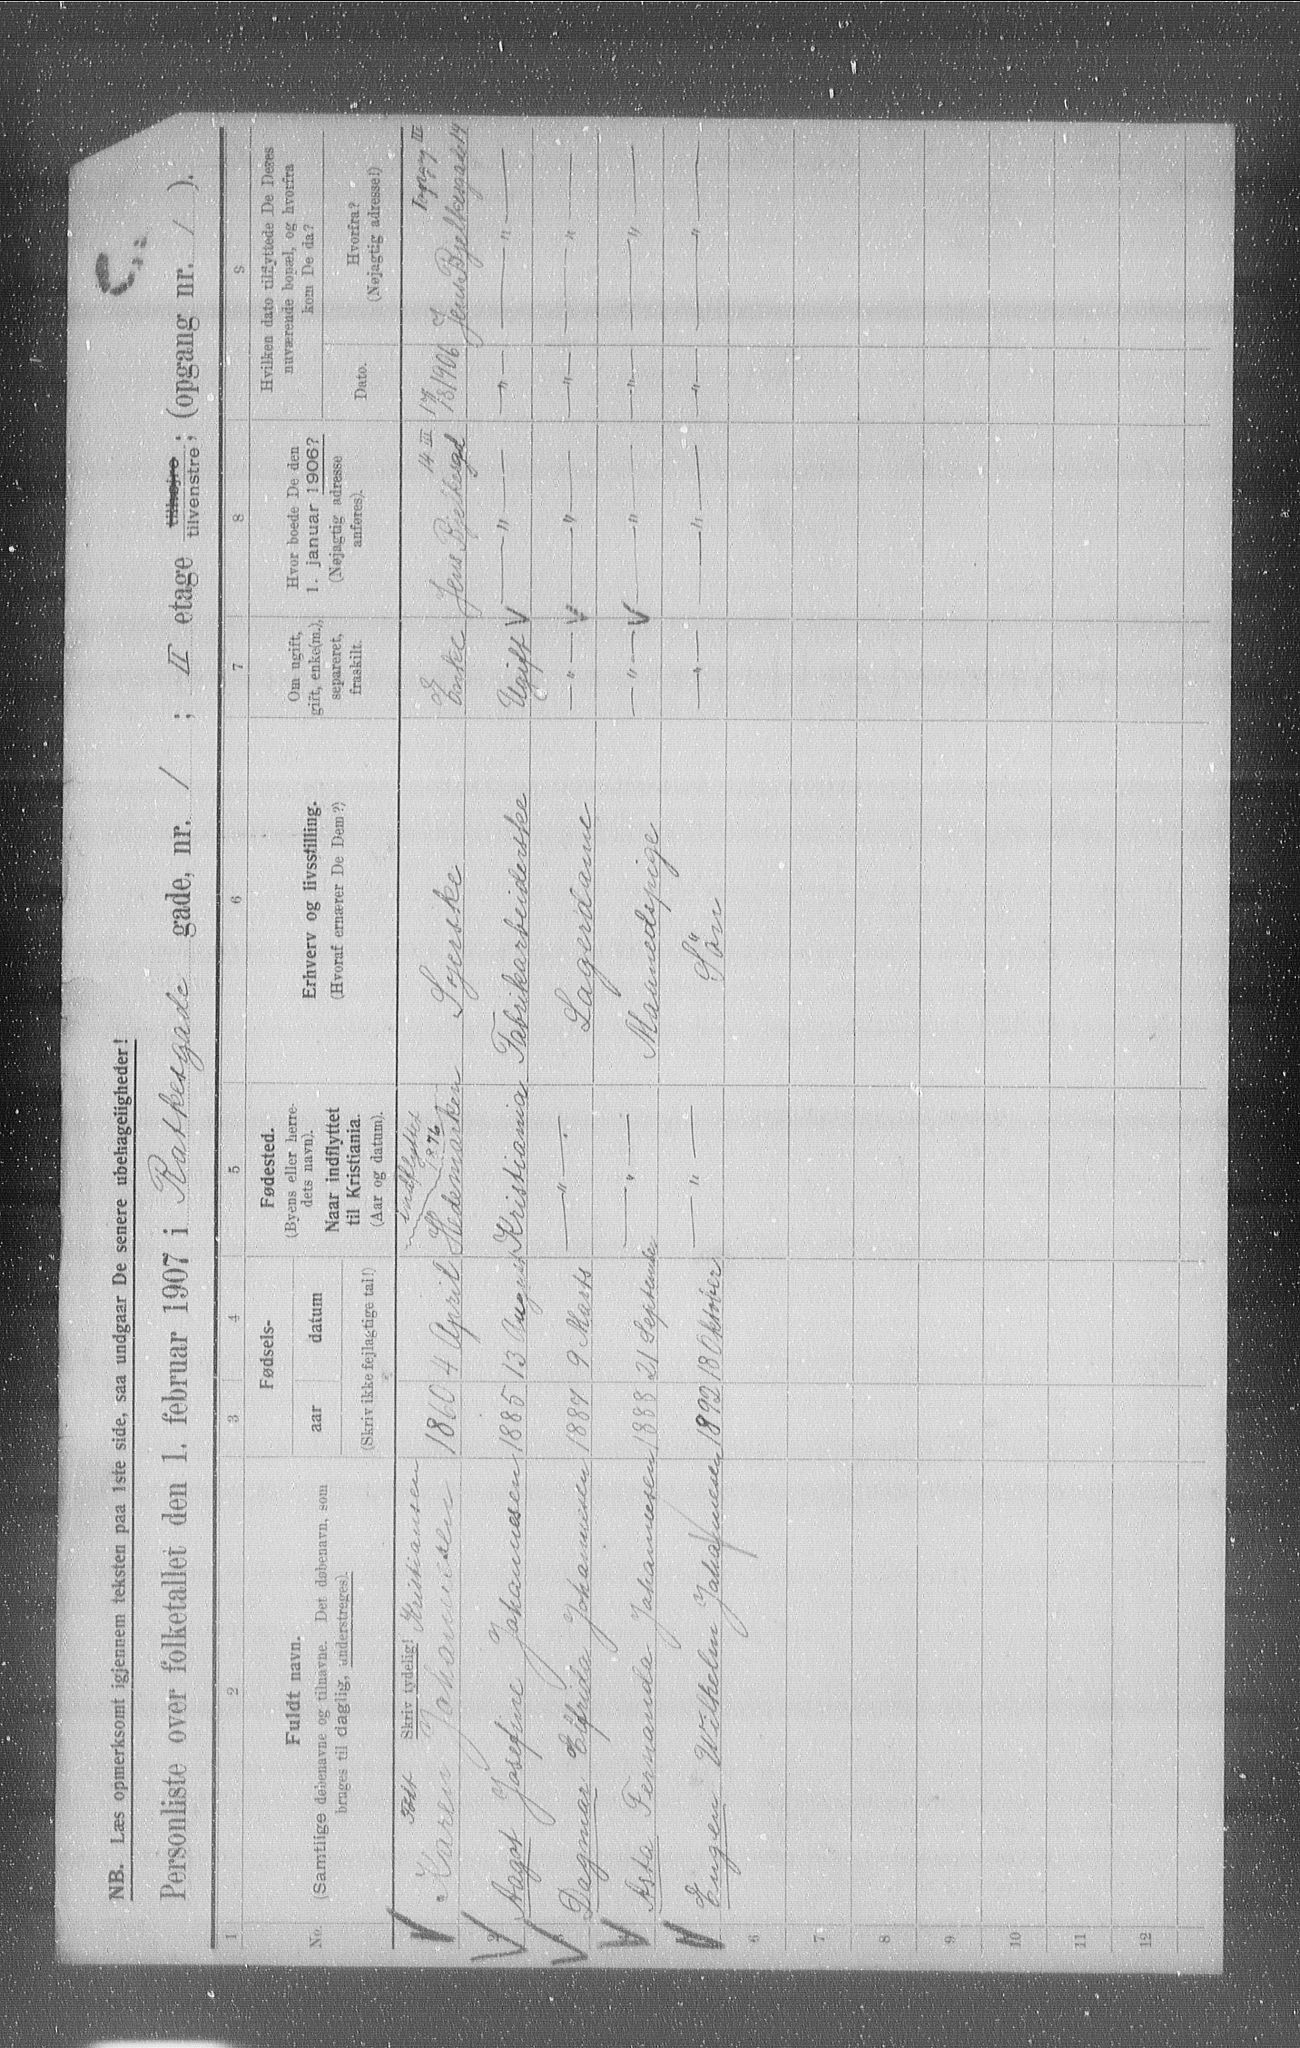 NB. Læs opmerksomt igjennem teksten paa 1ste side, saa undgaar De senere ubehageligheder!
Personliste over folketallet den 1. februar 1907 i Ratkesgade gade, nr. 1 ; II etage tilhøjre tilvenstre; (opgang nr. 1 ).
1 2 3 4 5 6 7 8 9
No.
Fuldt navn.
(Samtlige døbenavne og tilnavne. Det døbenavn, som
bruges til daglig, understreges).
Fødsels-
aar datum
(Skriv ikke fejlagtige tal!)
Fødested.
(Byens eller herre-
dets navn).
Naar indflyttet
til Kristiania.
(Aar og datum).
Erhverv og livsstilling.
(Hvoraf ernærer De Dem?)
Om ugift,
gift, enke(m.),
separeret,
fraskilt.
Hvor boede De den
1. januar 1906?
(Nøjagtig adresse
anføres).
Hvilken dato tilflyttede De Deres
nuværende bopæl, og hvorfra
kom De da?
Dato.
Hvorfra?
(Nøjagtig adresse!)
Skriv tydelig! Født Kristiansen indflyttet 1876 14 III 17 Opgang III
Karen Johannesen 1860 4 April Hedemarken Syerske Enke Jens Bjelkesgd 1906 Jens Bjelkesgade 14
Aagot Josefine Johannesen 1885 13 August Kristiania Fabrikarbeiderske Ugift — " — — " — — " —
Dagmar Elfrida Johannesen 1887 9 Marts — " — Lagerdame — " — — " — — " — — " —
Asta Fernanda Johannesen 1888 21 September — " — Maanedspige — " — — " — — " — — " —
Eugen Wilhelm Johannesen 1892 18 Oktober — " — Sön — " — — " — — " — — " —
6
7
8
9
10
11
12